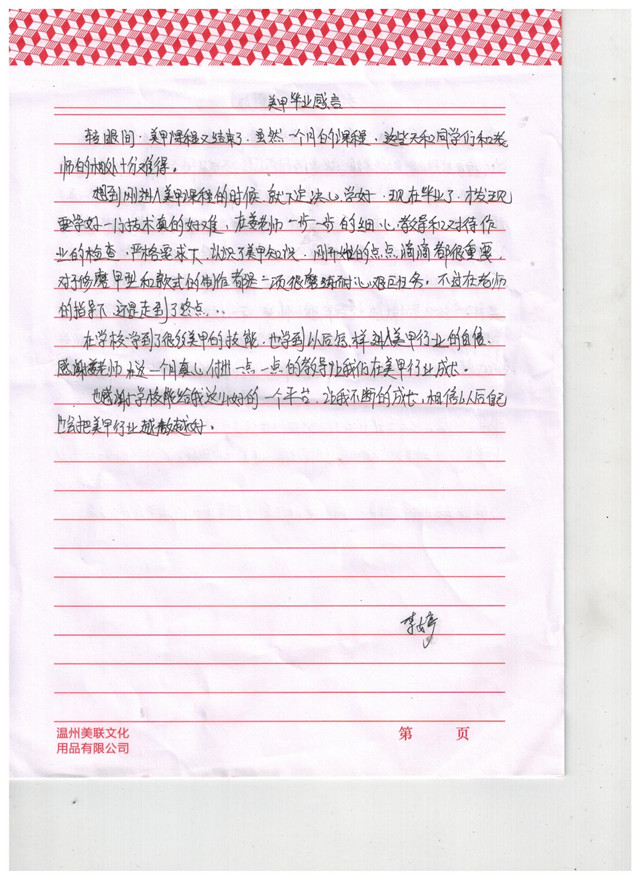 美甲毕业感言
转眼间,美甲课程又结束了,虽然一个月的课程,这些天和同学们和老
师的相处十分难得。
想到刚进入美甲课程的时候,就下定决心学好,现在毕业了,才发现
要学好一门技术真的好难,在姜老师一步一步的细心教导和对待作
业的检查,严格要求下,认识了美甲知识,刚开始的点点滴滴都很重要,
对于修磨甲型和款式的制作都是一项很磨练耐心的任务,不过在老师
的指导下还是走到了终点...
在学校学到了很多美甲的技能,也学到以后怎样进入美甲行业的自信,
感谢姜老师这一个月真心付出一点一点的教导让我们在美甲行业成长。
也感谢学校能给我这么好的一个平台,让我不断的成长,相信以后自己
会把美甲行业越做越好。
李婷
温州美联文化
用品有限公司
第 页